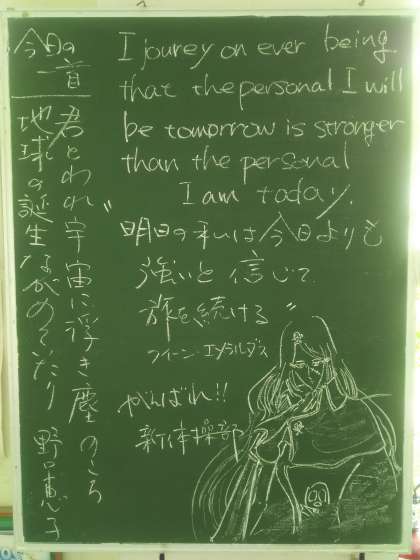 I jourey on ever being
that the personal I will
be tomorrow is stronger
than the personal
I am today.
"明日の私は今日よりも
強いと信じて
旅を続ける"
クイーン・エメラルダス
がんばれ!!
新体操部
今日の
一首
君とわれ宇宙に浮き塵のころ
地球の誕生ながめてゐたり 野口恵子